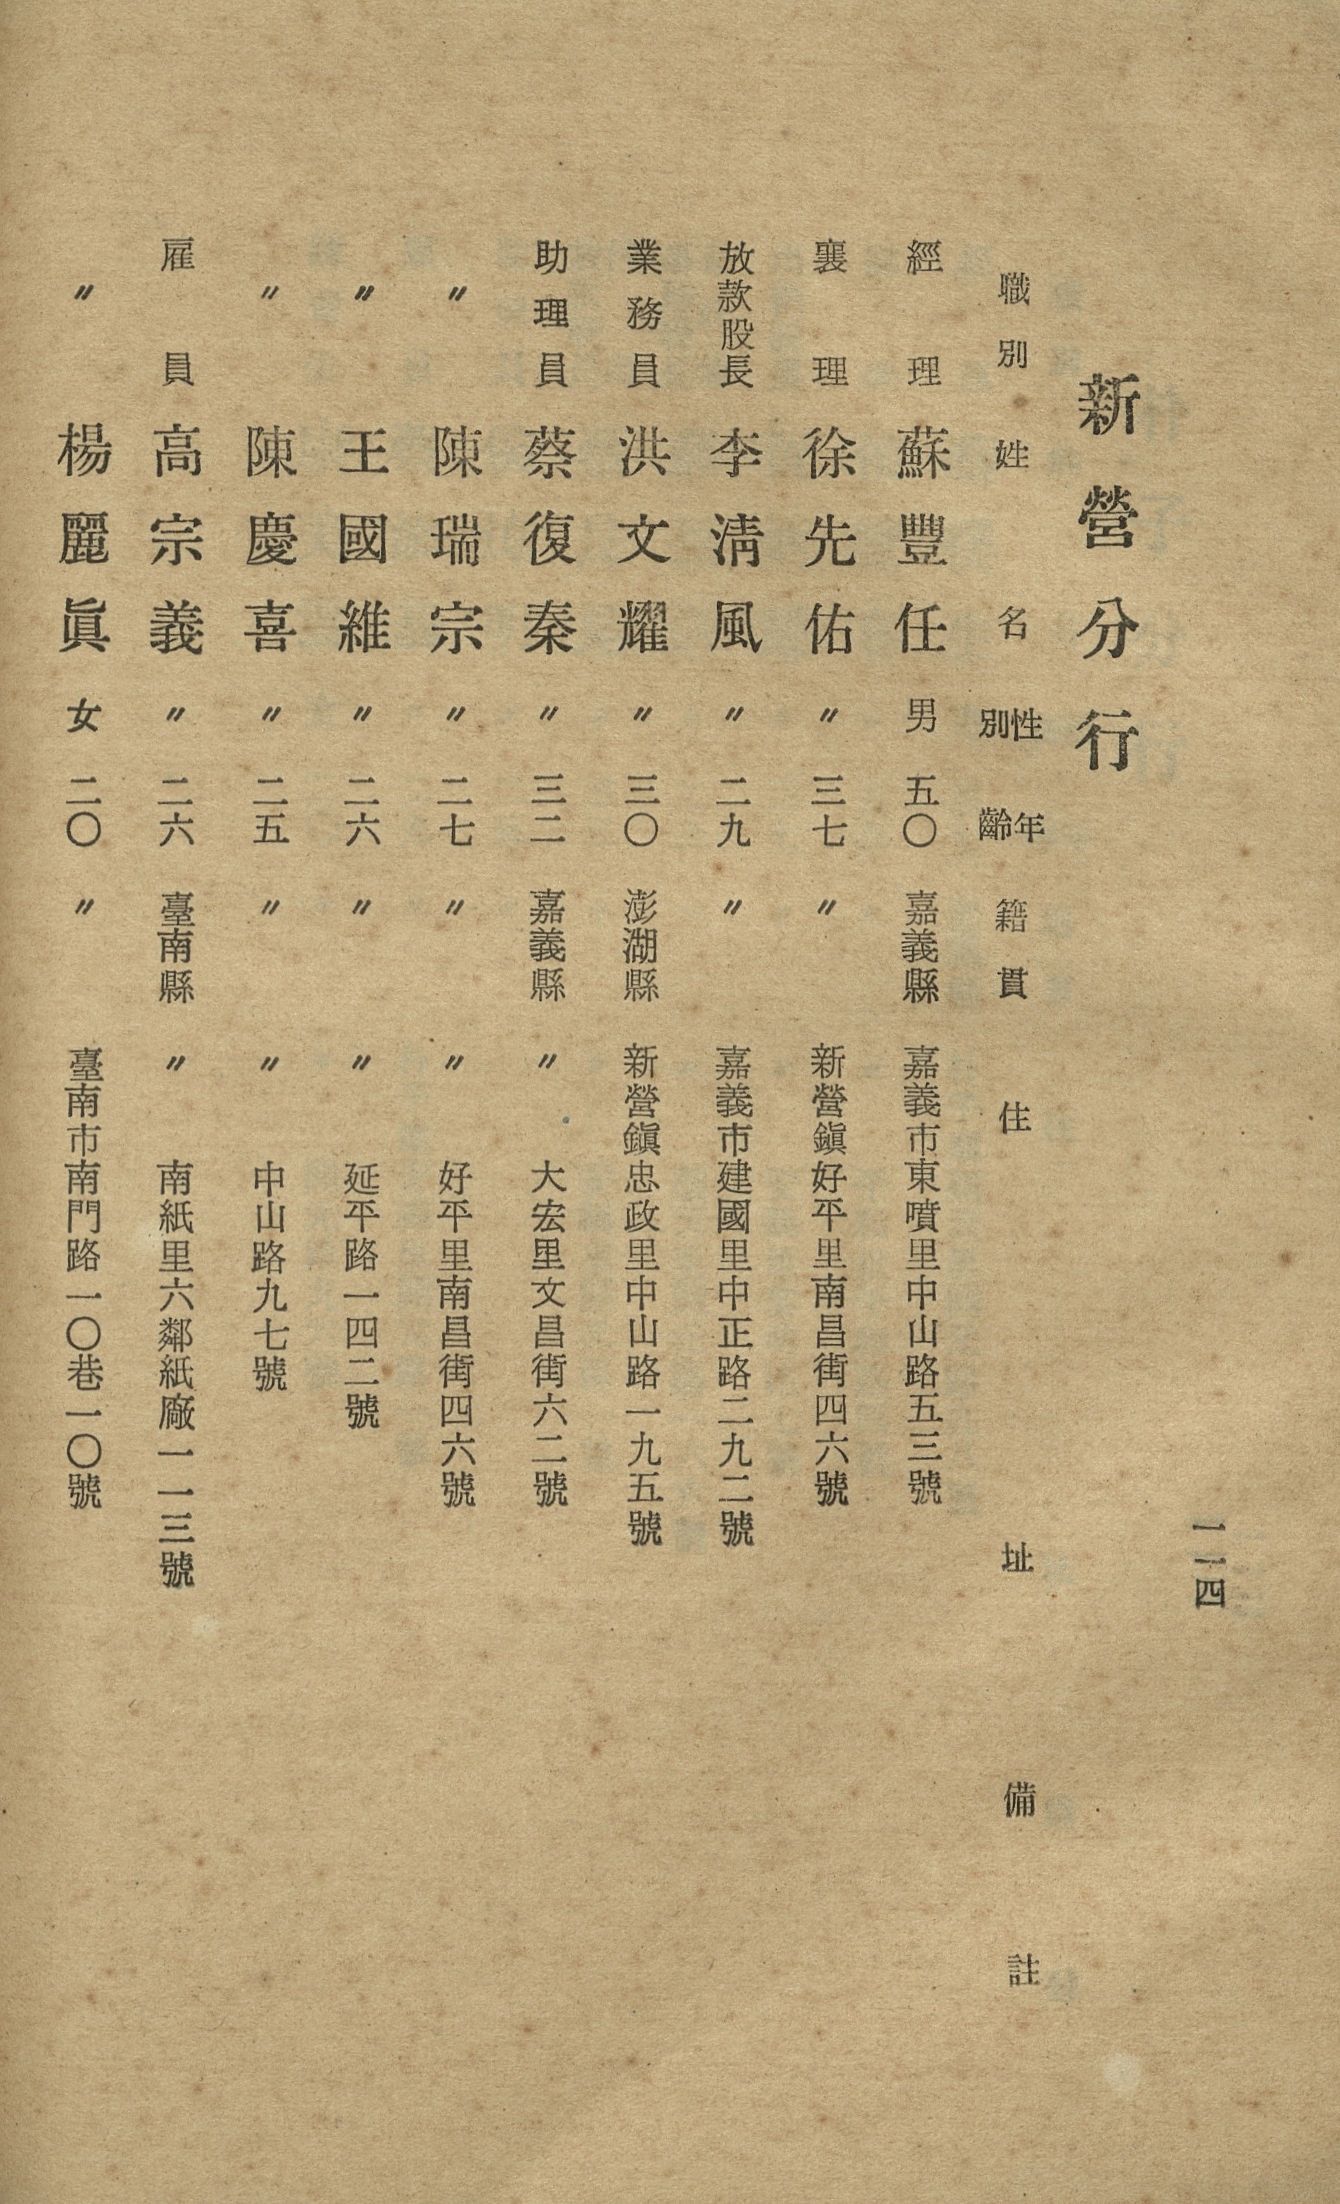 一一四
新營分行
職別 姓名 性別 年齡 籍貫 住址 備註
經理 蘇豐任 男 五〇 嘉義縣 嘉義市東噴里中山路五三號
襄理 徐先佑 〃 三七 〃 新營鎭好平里南昌街四六號
放款股長 李淸風 〃 二九 〃 嘉義市建國里中正路二九二號
業務員 洪文耀 〃 三〇 澎湖縣 新營鎭忠政里中山路一九五號
助理員 蔡復秦 〃 三二 嘉義縣 〃 大宏里文昌街六二號
〃 陳瑞宗 〃 二七 〃 〃 好平里南昌街四六號
〃 王國維 〃 二六 〃 〃 延平路一四二號
〃 陳慶喜 〃 二五 〃 〃 中山路九七號
雇員 高宗義 〃 二六 臺南縣 〃 南紙里六鄰紙廠一一三號
〃 楊麗眞 女 二〇 〃 臺南市南門路一〇巷一〇號